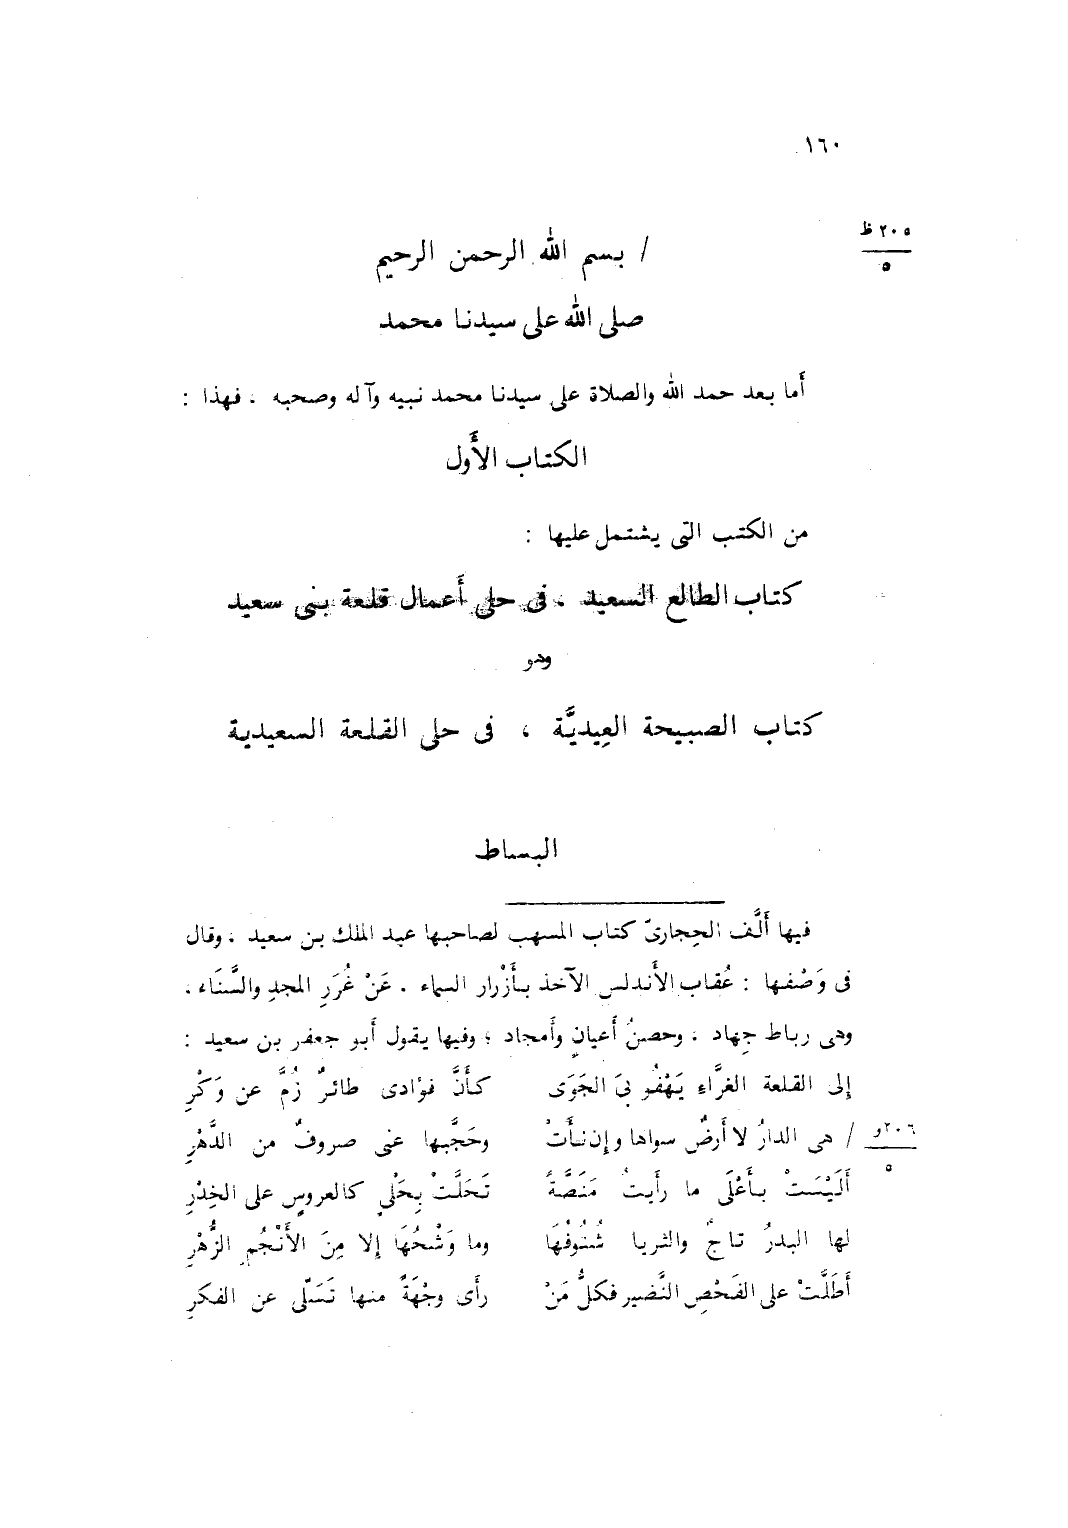 ١٦٠
٢٠٥ ظ
٥
/ بسم الله الرحمن الرحيم
صلى الله على سيدنا محمد
أما بعد حمد الله والصلاة على سيدنا محمد نبيه وآله وصحبه ، فهذا :
الكتاب الأَول
من الكتب التى يشتمل عليها :
كتاب الطالع السعيد ، فى حلى أَعمال قلعة بنى سعيد
وهو
كتاب الصبيحة العِيديَّة ، فى حلى القلعة السعيدية
البساط
فيها أَلَّف الحِجارىّ كتاب المسهب لصاحبها عبد الملك بن سعيد . وقال
فى وَصْفها : عُقاب الأَندلس الآخذ بأَزْرار السماء . عَنْ غُرَرِ المجدِ والسَّنَاء .
وهى رباط جِهاد . وحصنُ أَعيانٍ وأَمجاد ؛ وفيها يقول أَبو جعفر بن سعيد :
إلى القلعة الغرَّاءِ يَهْفُو بىَ الجَوَى كأَنَّ فؤادى طائرٌ زُمَّ عن وَكْرِ
٢٠٦و
٥
/ هى الدارُ لا أَرضٌ سواها وإن نأَتْ وحَجَّبها عنى صروفٌ من الدَّهْرِ
أَلَيْسَتْ بأَعْلَى ما رأَيتُ مَنَصَّةً تَحَلَّتْ بِحَلْىٍ كالعروسِ على الخِدْرِ
لها البدرُ تاجٌ والثريا شُنُوفُهَا وما وَشْحُهَا إلا مِنَ الأَنْجُمِ الزُّهْرِ
أَطَلَّتْ على الفَحْصِ النَّضير فكلُّ مَنْ رأَى وِجْهَةً منها تَسَلّى عن الفكرِ